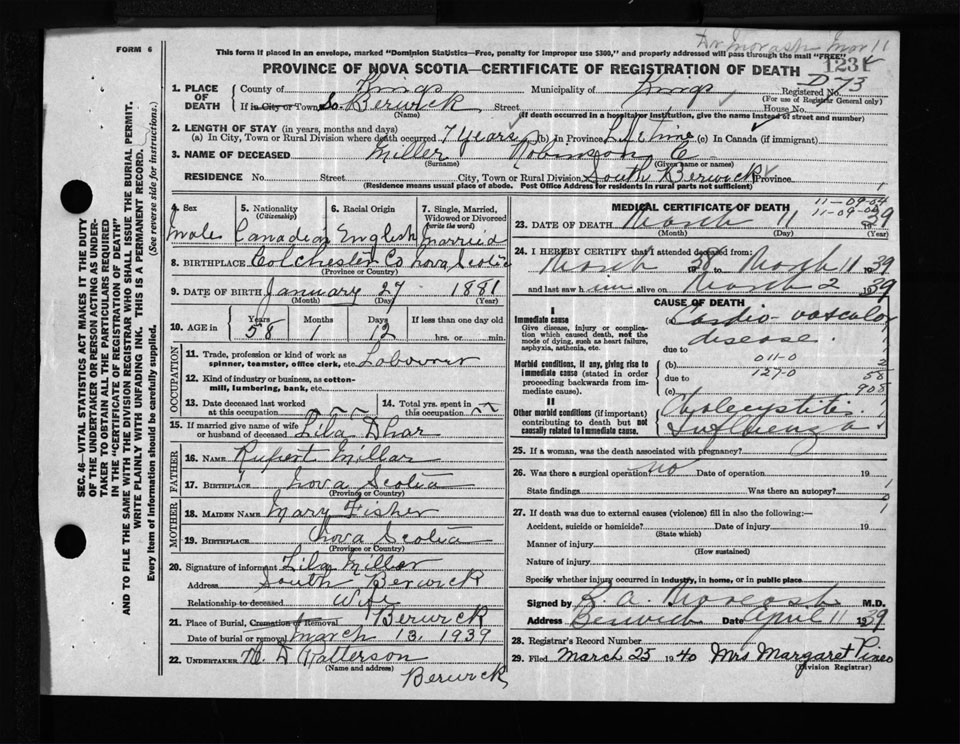 FORM 6
This form if placed in an envelope, marked "Dominion Statistics—Free, penalty for improper use $300," and properly addressed will pass through the mail "FREE"
Dr Morash Mar 11
1234
PROVINCE OF NOVA SCOTIA—CERTIFICATE OF REGISTRATION OF DEATH
D-73
1. PLACE OF DEATH
County of Kings Municipality of Kings Registered No.
(For use of Registrar General only)
If in City or Town So. Berwick Street House No.
(Name) (If death occurred in a hospital or institution, give its name instead of street and number)
2. LENGTH OF STAY (in years, months and days)
(a) In City, Town or Rural Division where death occurred 7 years (b) In Province Lifetime (c) In Canada (if immigrant)
3. NAME OF DECEASED Miller Robinson C
(Surname) (Given name or names)
RESIDENCE No. Street City, Town or Rural Division South Berwick Province
(Residence means usual place of abode. Post Office Address for residents in rural parts not sufficient)
4. Sex 5. Nationality (Citizenship) 6. Racial Origin 7. Single, Married, Widowed or Divorced (write the word)
Male Canadian English Married
8. BIRTHPLACE Colchester Co Nova Scotia
(Province or Country)
9. DATE OF BIRTH January 27 1881
(Month) (Day) (Year)
10. AGE in Years Months Days If less than one day old
58 1 12 hrs. or min.
OCCUPATION
11. Trade, profession or kind of work as spinner, teamster, office clerk, etc. Labourer
12. Kind of industry or business, as cotton-mill, lumbering, bank, etc.
13. Date deceased last worked at this occupation
14. Total yrs. spent in this occupation
15. If married give name of wife or husband of deceased Lila Dhar
FATHER
16. NAME Rupert Millar
17. BIRTHPLACE Nova Scotia
(Province or Country)
MOTHER
18. MAIDEN NAME Mary Fisher
19. BIRTHPLACE Nova Scotia
(Province or Country)
20. Signature of informant Lila Miller
Address South Berwick
Relationship to deceased Wife
21. Place of Burial, Cremation or Removal Berwick
Date of burial or removal March 13, 1939
22. UNDERTAKER Patterson
(Name and address)
Berwick
MEDICAL CERTIFICATE OF DEATH
11-09-04
23. DATE OF DEATH March 11 1939
(Month) (Day) (Year)
24. I HEREBY CERTIFY that I attended deceased from:
March 1938 March 11 1939
and last saw him alive on March 2 1939
CAUSE OF DEATH
I
Immediate cause
Give disease, injury or complication which caused death, not the mode of dying, such as heart failure, asphyxia, asthenia, etc.
(a) Cardio-vascular disease.
due to
011-0
Morbid conditions, if any, giving rise to immediate cause (stated in order proceeding backwards from immediate cause).
(b)
127-0
due to 58
(c) 908
II
Other morbid conditions (if important) contributing to death but not causally related to immediate cause.
Cholecystitis.
Influenza
25. If a woman, was the death associated with pregnancy?
26. Was there a surgical operation? no Date of operation 19
State findings Was there an autopsy?
27. If death was due to external causes (violence) fill in also the following:—
Accident, suicide or homicide? Date of injury 19
(State which)
Manner of injury
(How sustained)
Nature of injury
Specify whether injury occurred in industry, in home, or in public place
Signed by M.D.
Address Berwick Date April 11 1939
28. Registrar's Record Number
29. Filed March 25 1940 Mrs Margaret Pineo
(Division Registrar)
SEC. 46—VITAL STATISTICS ACT MAKES IT THE DUTY OF THE UNDERTAKER OR PERSON ACTING AS UNDERTAKER TO OBTAIN ALL THE PARTICULARS REQUIRED IN THE "CERTIFICATE OF REGISTRATION OF DEATH" AND TO FILE THE SAME WITH THE DIVISION REGISTRAR WHO SHALL ISSUE THE BURIAL PERMIT.
WRITE PLAINLY WITH UNFADING INK. THIS IS A PERMANENT RECORD.
Every item of information should be carefully supplied. (See reverse side for instructions.)